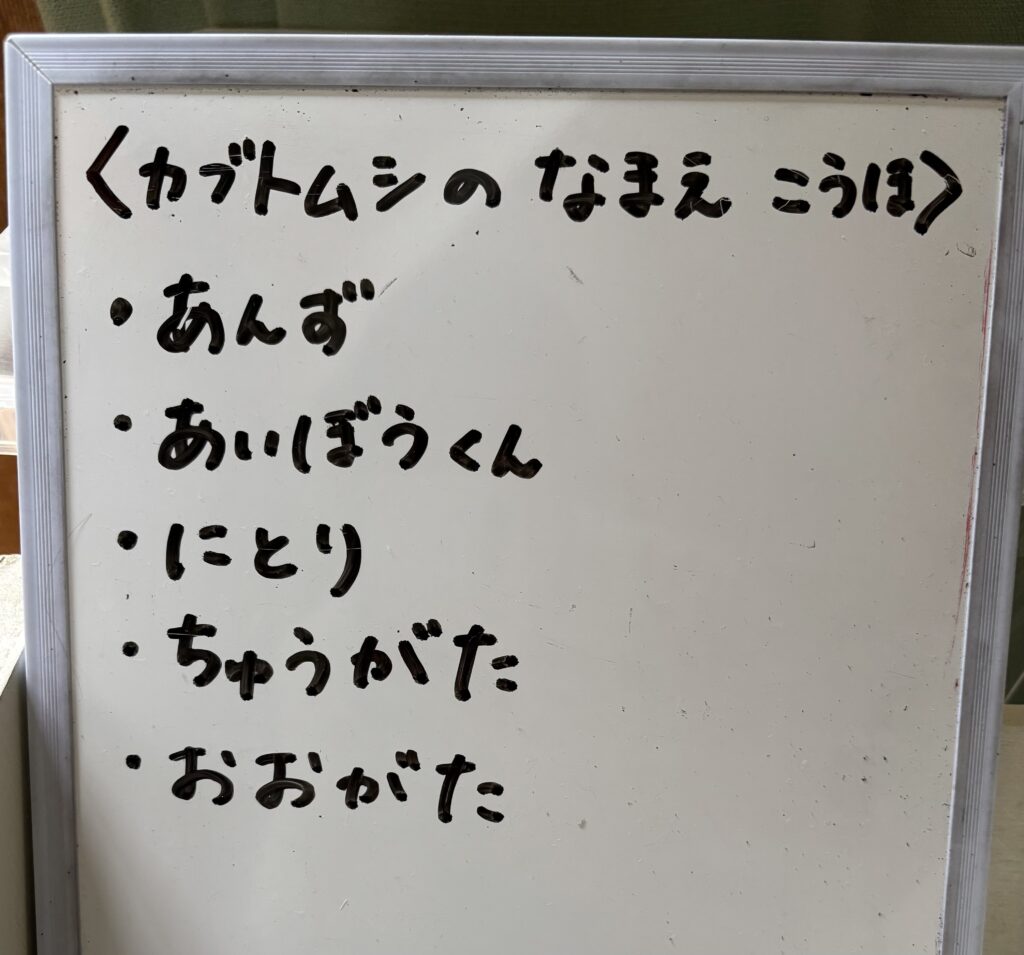 〈カブトムシの なまえ こうほ〉
・あんず
・あいぼうくん
・にとり
・ちゅうがた
・おおがた